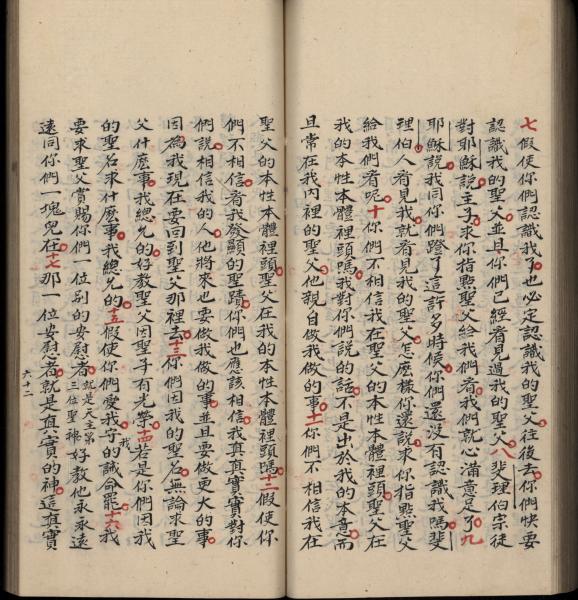 七假使你們認識我了也必定認識我的聖父往後去你們快要
認識我的聖父並且你們已經看見過我的聖父八斐理伯宗徒
對耶穌說主子求你指點聖父給我們看我們就心滿意足了九
耶穌說我同你們蹬了這許多時候你們還沒有認識我嗎斐
理伯人看見我就看見我的聖父怎麼樣你還說求你指點聖父
給我們看呢十你們不相信我在聖父的本性本體裡頭聖父在
我的本性本體裡頭嗎我對你們說的話不是出於我的本意而
且常在我內裡的聖父他親自做我做的事十一你們不相信我在
聖父的本性本體裡頭聖父在我的本性本體裡頭嗎十二假使你
們不相信看我發顯的聖蹟你們也應該相信我真真實實對你
們說相信我的人他將來也要做我做的事並且要做更大的事
因為我現在要回到聖父那裡去十三你們因我的聖名無論求聖
父什麼事我總允的好教聖父因聖子有光榮十四若是你們因我
的聖名求什麼事我總允的十五假使你們愛我守我的誡命罷十六我
要求聖父賞賜你們一位別的安慰者就是天主第三位聖神好教他永永遠
遠同你們一塊兒在十七那一位安慰者就是真實的神這真實
六十二